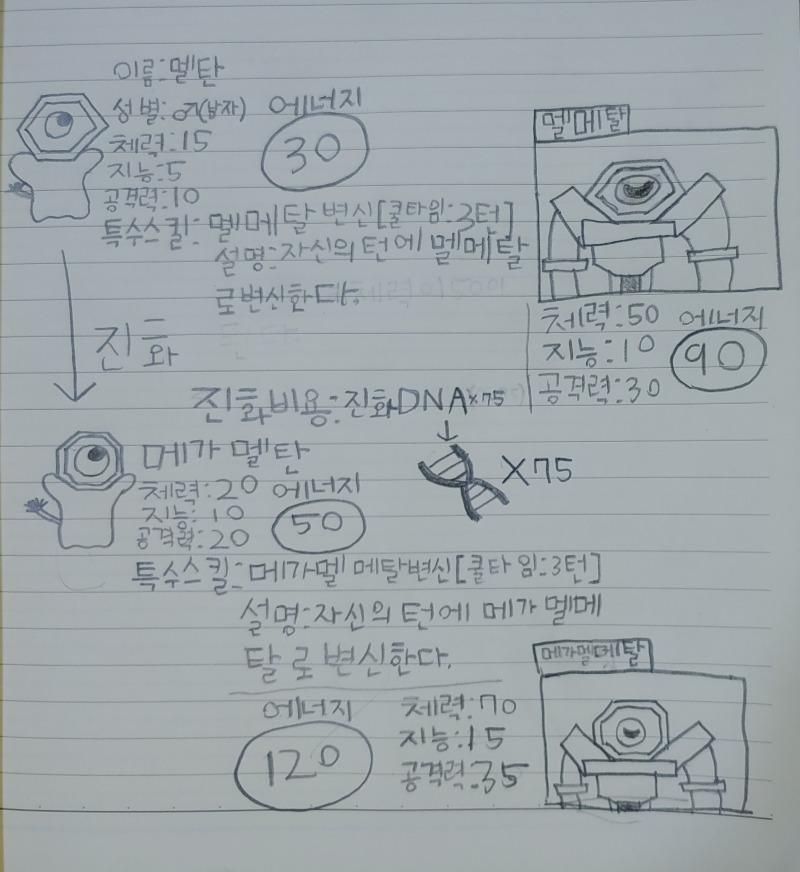 이름:멜탄
성별:♂(남자) 에너지
체력:15 30
지능:5
공격력:10
특수스킬:멜메탈변신[쿨타임:3턴]
설명:자신의 턴에 멜메탈
로변신한다.
멜메탈
체력:50 에너지
지능:10 90
공격력:30
진화
진화비용:진화DNA×75
×75
메가 멜탄
체력:20 에너지
지능:10 50
공격력:20
특수스킬:메가멜메탈변신[쿨타임:3턴]
설명:자신의 턴에 메가 멜메
탈로변신한다.
메가멜메탈
에너지 체력:70
120 지능:15
공격력:35